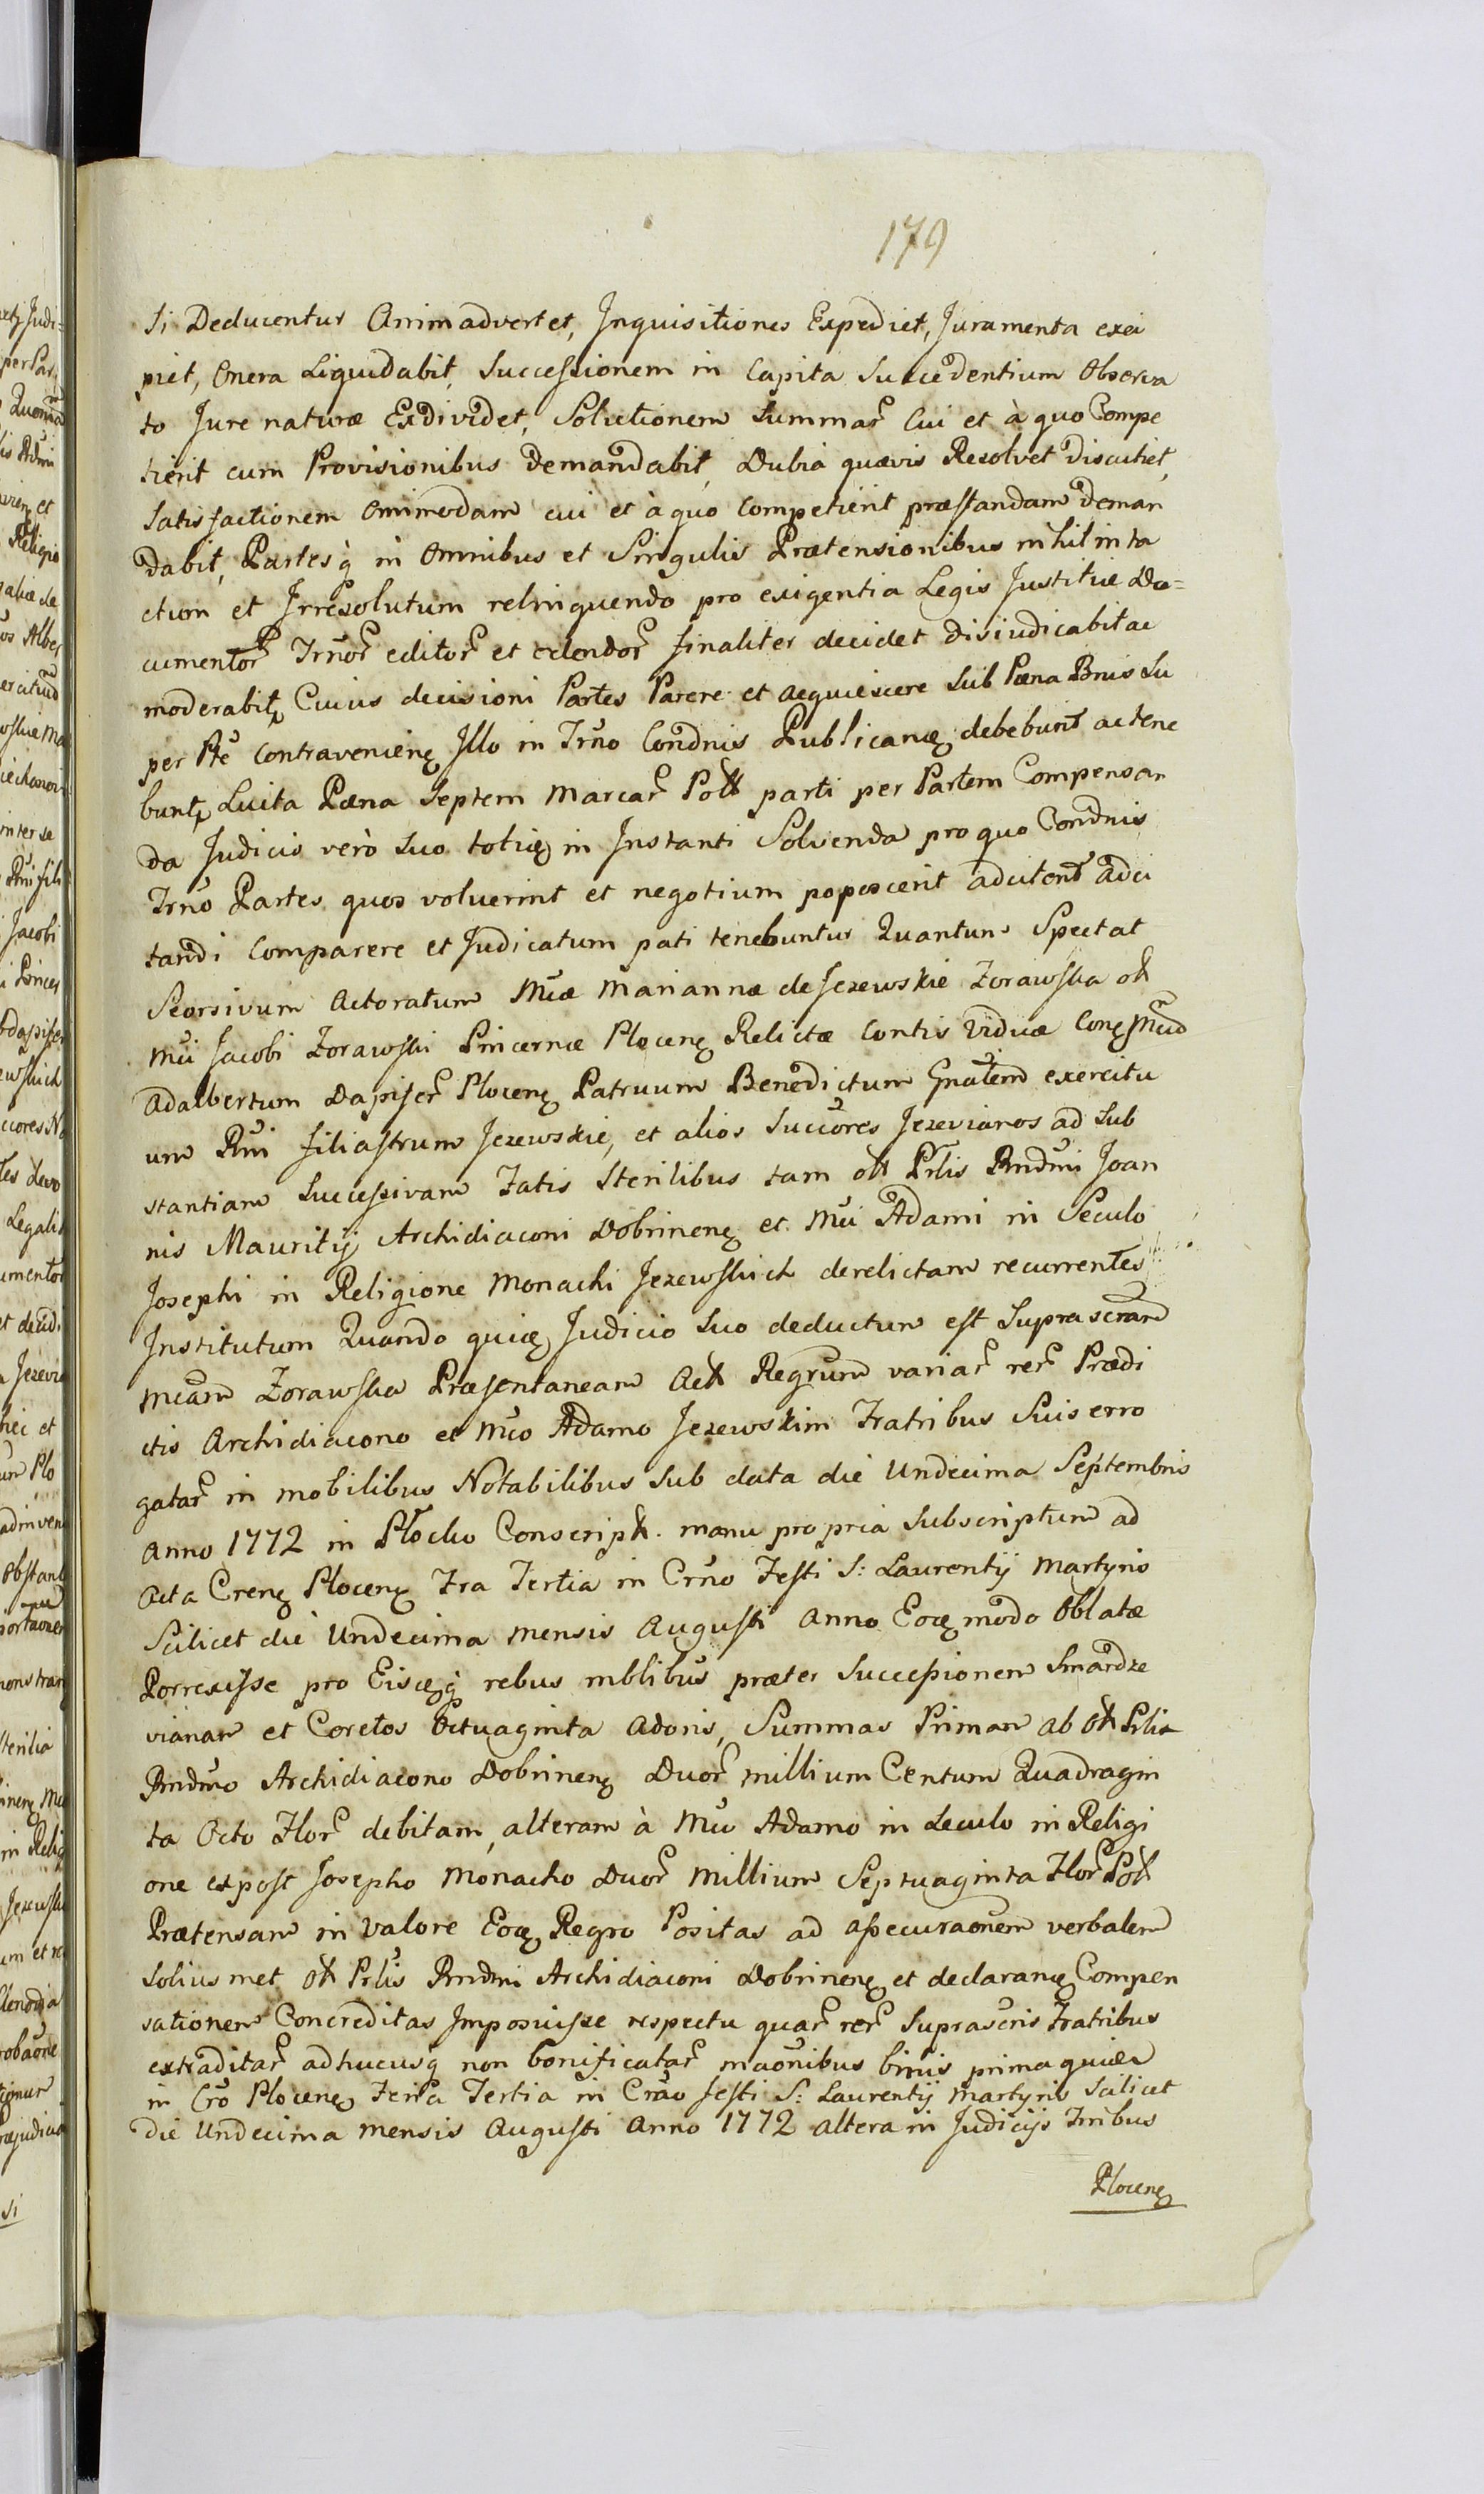 179
Si Deducentur Animadvertet, Inquisitiones Expediet, Juramenta exci
piet, Onera Liquidabit, Successionem in Capita Succedentium Observa
to Jure naturæ Exdividet, Solutionem Summar Cui et à quo Compe
tierit cum Provisionibus demandabit, Dubia quævis Resolvet discutiet,
Satisfactionem Omnimodam cui et à quo Competierit præstandam deman
dabit, Partesq̀ in Omnibus et Singulis Prætensionibus nihil inta
ctum et Irresolutum relinquendo pro exigentia Legis Justitiæ Do=
cumentor Trnor editor et edendor finaliter decidet disiudicabit ac
moderabit, Cuius decisioni Partes Parere et acquiescere Sub Pæna Bnis Su
per Pte Contravenien Illo in Trno Condnis Publicanæ debebunt ac tene
bunt, Luita Pæna Septem Marcar Poll parti per Partem Compensan
da Judicio verò Suo toties in Instanti Solvenda pro quo Condnis
Trno Partes quos voluerint et negotium poposcerit adcitent adci
tandi Comparere et Judicatum pati tenebuntur Quantum Spectat
Seorsivum Actoratum Mcæ Mariannæ de Jezewskie Zorawska ol
Mci Jacobi Zorawski Pincernæ Plocen Relictæ Contis Viduæ Con Mcud
Adalbertum Dapifer Plocen Patruum Benedictum Gnalem exercitu
um Rni filiastrum Jezewskie, et alios Succores Jezevianos ad Sub
stantiam Successivam Fatis Sterilibus tam oll Prlis Rndmi Joan
nis Mauritij Archidiaconi Dobrinen et Mci Adami in Seculo
Josephi in Religione Monachi Jezewskich derelictam recurrentes
Institutum Quando quidem Judicio Suo deductum est Suprascram
mcam Zorawska Præsentaneam Act Regrum variar rer Prædi
ctis Archidiacono et Mco Adamo Jezewskim Fratribus Suis erro
gatar in mobilibus Notabilibus Sub data die Undecima Septembris
Anno 1772 in Plocko Conscript. manu propria Subscriptum ad
Acta Cren Plocen Fra Tertia in Crno Festi S: Laurentij Martyris
Scilicet die Undecima mensis Augusti Anno Eoq modo Oblatæ
Porrexisse pro Eiscq rebus mblibus præter Successionem Smardze
vianam et Coretos Octuaginta Adoris, Summas Primam ab Ol Prlis
Rndmo Archidiacono Dobrinen Duor millium Centum Quadragin
ta Octo Flor debitam, alteram à Mco Adamo in Seculo in Religi
one expost Josepho Monacho Duor Millium Septuaginta Flor Pol
Prætensam in Valore Eoq Regro Positas ad assecuraonem verbalem
Soliusmet Ol Prlis Rndmi Archidiaconi Dobrinen et declaranq Compen
sationem Concreditas Imposuisse respectu quar rer Suprascris Fratribus
extraditar adhucusq̀ non bonificatar maonibus binis prima quidem
in Cro Plocen Feria Tertia in Crao festi S: Laurentij Martyris Scilicet
die Undecima mensis Augusti Anno 1772 altera in Judicijs Tribus
Plocen